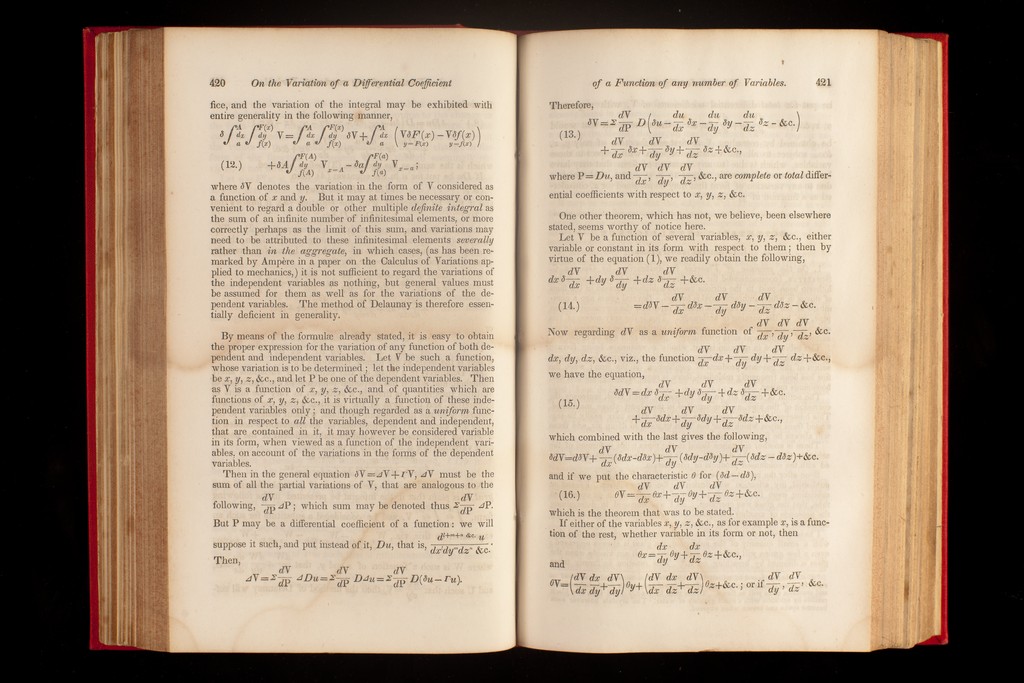 420 On the Variation of a Differential Coefficient
fice, and the variation of the integral may be exhibited with
entire generality in the following manner,
δ∫ₐᴬdx ∫_{f(x)}^{F(x)}dy V = ∫ₐᴬdx ∫_{f(x)}^{F(x)}dy δV + ∫ₐᴬdx (VδF(x) − Vδf(x))
y=F(x) y=f(x)
(12.) +δA∫_{f(A)}^{F(A)}dy V_{x=A} − δa∫_{f(a)}^{F(a)}dy V_{x=a};
where δV denotes the variation in the form of V considered as
a function of x and y. But it may at times be necessary or con-
venient to regard a double or other multiple definite integral as
the sum of an infinite number of infinitesimal elements, or more
correctly perhaps as the limit of this sum, and variations may
need to be attributed to these infinitesimal elements severally
rather than in the aggregate, in which cases, (as has been re-
marked by Ampère in a paper on the Calculus of Variations ap-
plied to mechanics,) it is not sufficient to regard the variations of
the independent variables as nothing, but general values must
be assumed for them as well as for the variations of the de-
pendent variables. The method of Delaunay is therefore essen-
tially deficient in generality.
By means of the formulæ already stated, it is easy to obtain
the proper expression for the variation of any function of both de-
pendent and independent variables. Let V be such a function,
whose variation is to be determined; let the independent variables
be x, y, z, &c., and let P be one of the dependent variables. Then
as V is a function of x, y, z, &c., and of quantities which are
functions of x, y, z, &c., it is virtually a function of these inde-
pendent variables only; and though regarded as a uniform func-
tion in respect to all the variables, dependent and independent,
that are contained in it, it may however be considered variable
in its form, when viewed as a function of the independent vari-
ables, on account of the variations in the forms of the dependent
variables.
Then in the general equation δV=ΔV+ΓV, ΔV must be the
sum of all the partial variations of V, that are analogous to the
following, dV/dP ΔP; which sum may be denoted thus Σ dV/dP ΔP.
But P may be a differential coefficient of a function: we will
suppose it such, and put instead of it, Du, that is,
Then,
ΔV=Σ dV/dP ΔDu=Σ dV/dP DΔu=Σ dV/dP D(δu−Γu).
of a Function of any number of Variables. 421
Therefore,
(13.) δV=Σ dV/dP D(δu − du/dx δx − du/dy δy − du/dz δz − &c.)
+ dV/dx δx + dV/dy δy + dV/dz δz + &c.,
where P=Du, and dV/dx, dV/dy, dV/dz, &c., are complete or total differ-
ential coefficients with respect to x, y, z, &c.
One other theorem, which has not, we believe, been elsewhere
stated, seems worthy of notice here.
Let V be a function of several variables, x, y, z, &c., either
variable or constant in its form with respect to them; then by
virtue of the equation (1), we readily obtain the following,
dx δ dV/dx + dy δ dV/dy + dz δ dV/dz + &c.
(14.) =dδV − dV/dx dδx − dV/dy dδy − dV/dz dδz − &c.
Now regarding dV as a uniform function of dV/dx, dV/dy, dV/dz, &c.
dx, dy, dz, &c., viz., the function dV/dx dx + dV/dy dy + dV/dz dz + &c.,
we have the equation,
(15.) δdV = dx δ dV/dx + dy δ dV/dy + dz δ dV/dz + &c.
+ dV/dx δdx + dV/dy δdy + dV/dz δdz + &c.,
which combined with the last gives the following,
δdV=dδV+ dV/dx (δdx−dδx)+ dV/dy (δdy−dδy)+ dV/dz (δdz − dδz)+&c.
and if we put the characteristic θ for (δd−dδ),
(16.) θV= dV/dx θx + dV/dy θy + dV/dz θz + &c.
which is the theorem that was to be stated.
If either of the variables x, y, z, &c., as for example x, is a func-
tion of the rest, whether variable in its form or not, then
θx= dx/dy θy + dx/dz θz + &c.,
and
θV=(dV/dx dx/dy + dV/dy)θy+(dV/dx dx/dz + dV/dz)θz+&c.; or if dV/dy, dV/dz, &c.